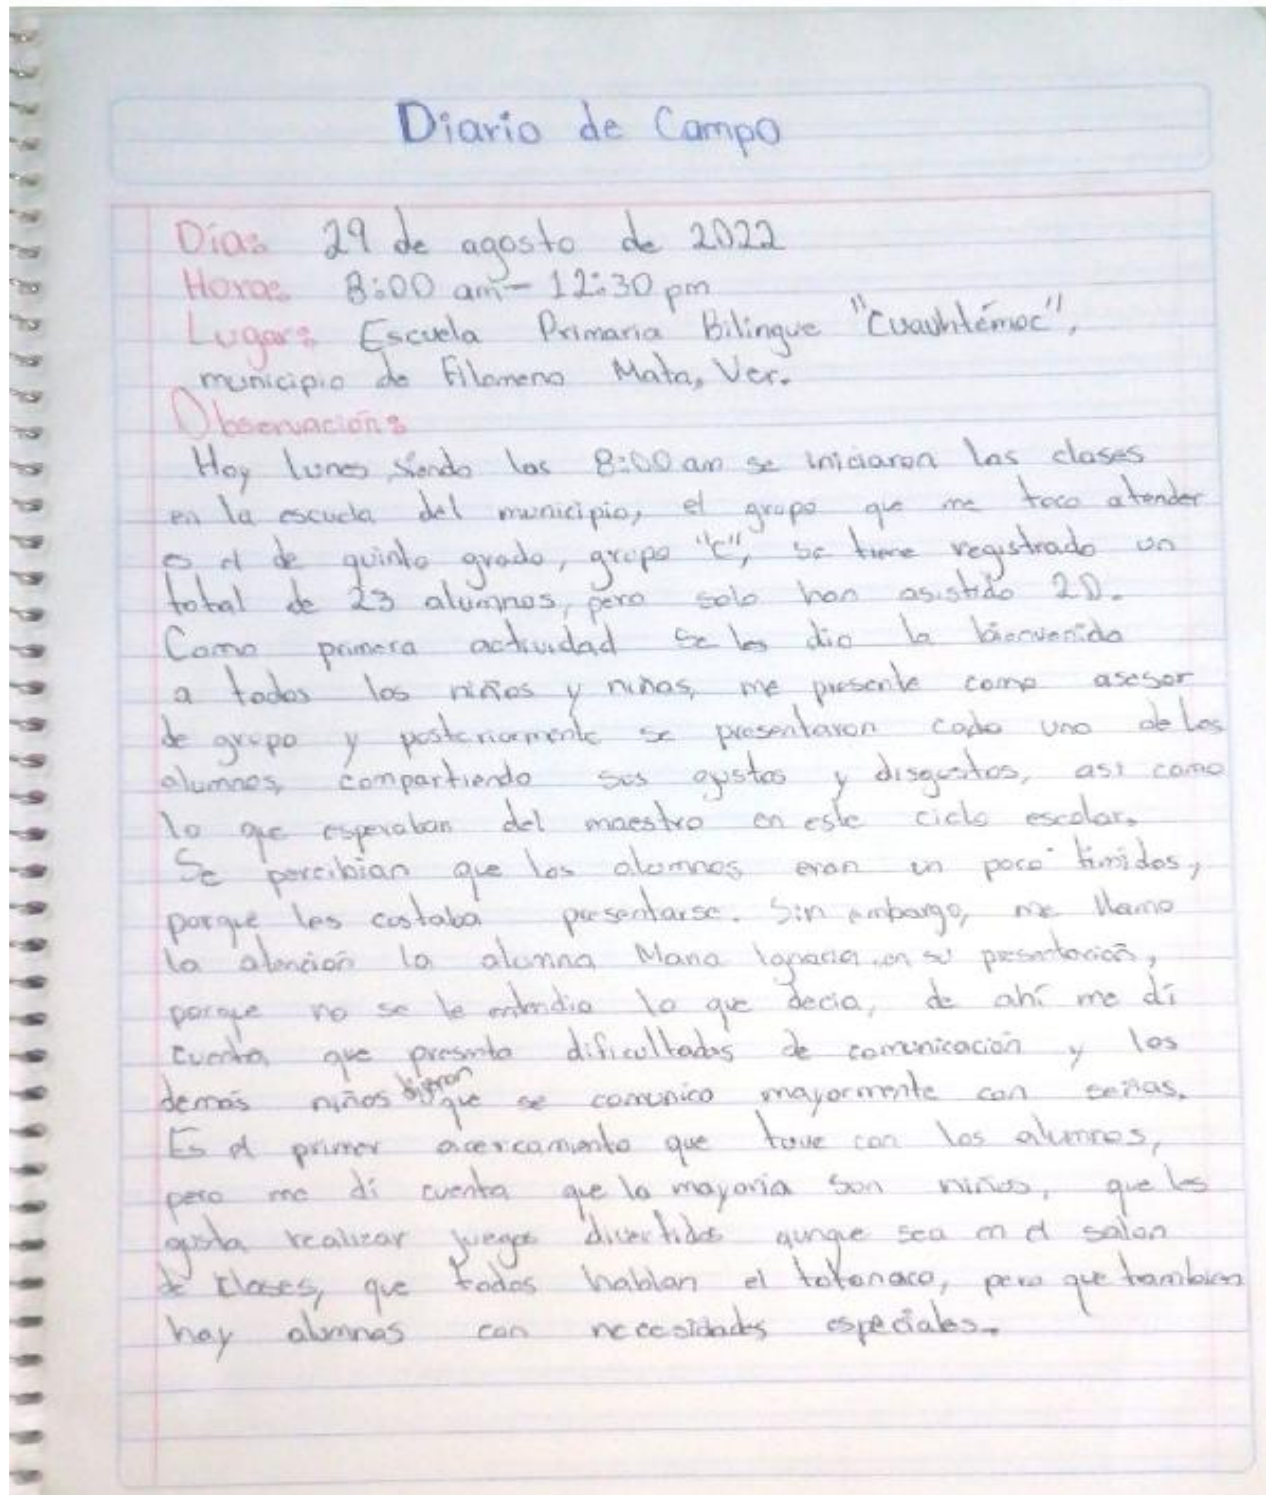 Diario de Campo
Día: 29 de agosto de 2022
Hora: 8:00 am - 12:30 pm
Lugar: Escuela Primaria Bilingue "Cuauhtémoc",
municipio de Filomeno Mata, Ver.
Observación:
Hoy lunes siendo las 8:00 am se iniciaron las clases
en la escuela del municipio, el grupo que me toco atender
es el de quinto grado, grupo "C", se tiene registrado un
total de 23 alumnos, pero solo han asistido 20.
Como primera actividad se les dio la bienvenida
a todos los niños y niñas, me presente como asesor
de grupo y posteriormente se presentaron cada uno de los
alumnos, compartiendo sus gustos y disgustos, asi como
lo que esperaban del maestro en este ciclo escolar.
Se percibian que los alumnos eran un poco timidos,
porque les costaba presentarse. Sin embargo, me llamo
la atención la alumna Maria Ignacia en su presentación,
porque no se le entendia lo que decia, de ahí me dí
cuenta que presenta dificultades de comunicación y los
demás niños dijeron que se comunica mayormente con señas.
Es el primer acercamiento que tuve con los alumnos,
pero me dí cuenta que la mayoria son niños, que les
gusta realizar juegos divertidos aunque sea en el salon
de clases, que todos hablan el totonaco, pero que tambien
hay alumnos con necesidades especiales.